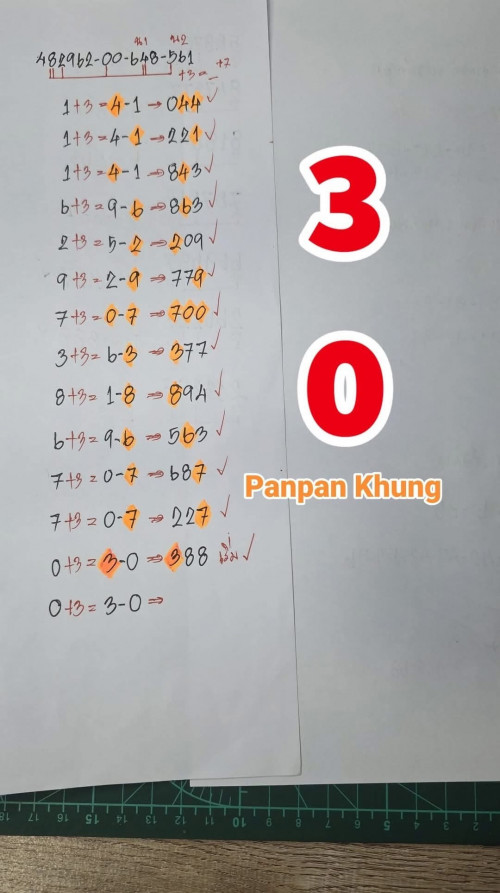 น1 น2
482962-00-648-561
+3= +7
1+3=4-1→044✓
1+3=4-1⇒221✓
1+3=4-1→843✓
6+3=9-6⇒863✓
2+3=5-2⇒209✓
9+3=2-9⇒779✓
7+3=0-7⇒700✓
3+3=6-3⇒377✓
8+3=1-8⇒894✓
6+3=9-6⇒563✓
7+3=0-7⇒687✓
7+3=0-7⇒227✓
0+3=3-0⇒388 ✓
0+3=3-0⇒
3
0
Panpan Khung
18 15 14 11 10 9 6 5 4 3 2